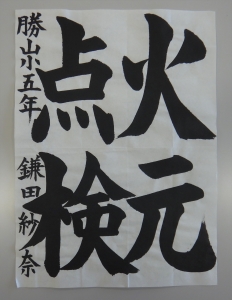 火元
点検
勝山小五年 鎌田紗奈